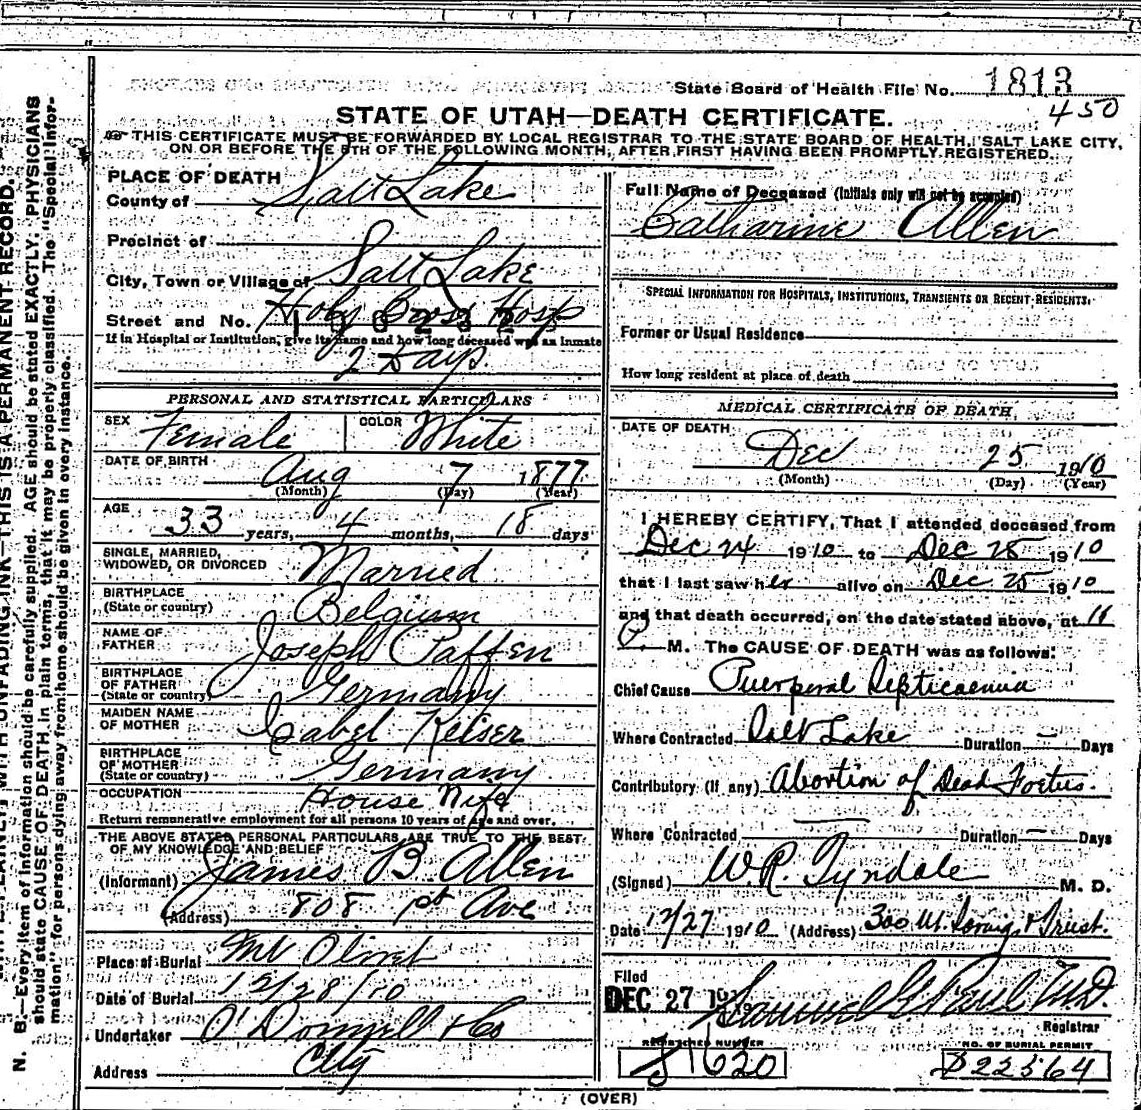 State Board of Health File No. 1813
450
STATE OF UTAH—DEATH CERTIFICATE.
THIS CERTIFICATE MUST BE FORWARDED BY LOCAL REGISTRAR TO THE STATE BOARD OF HEALTH, SALT LAKE CITY,
ON OR BEFORE THE 5TH OF THE FOLLOWING MONTH, AFTER FIRST HAVING BEEN PROMPTLY REGISTERED.
PLACE OF DEATH
County of Salt Lake
Precinct of
City, Town or Village of Salt Lake
Street and No. Holy Cross Hosp
If in Hospital or Institution, give its name and how long deceased was an inmate
2 Days.
PERSONAL AND STATISTICAL PARTICULARS
SEX Female COLOR White
DATE OF BIRTH Aug 7 1877
(Month) (Day) (Year)
AGE
33 years, 4 months, 18 days
SINGLE, MARRIED,
WIDOWED, OR DIVORCED Married
BIRTHPLACE
(State or country) Belgium
NAME OF
FATHER Joseph Paffen
BIRTHPLACE
OF FATHER
(State or country) Germany
MAIDEN NAME
OF MOTHER Isabel Keiser
BIRTHPLACE
OF MOTHER
(State or country) Germany
OCCUPATION House Wife
Return remunerative employment for all persons 10 years of age and over.
THE ABOVE STATED PERSONAL PARTICULARS ARE TRUE TO THE BEST
OF MY KNOWLEDGE AND BELIEF
(Informant) James B. Allen
(Address) 808 1st Ave
Place of Burial Mt Olivet
Date of Burial 12/28/10
Undertaker O'Donnell & Co
Address City
Full Name of Deceased (Initials only will not be accepted)
Catharine Allen
SPECIAL INFORMATION FOR HOSPITALS, INSTITUTIONS, TRANSIENTS OR RECENT RESIDENTS.
Former or Usual Residence
How long resident at place of death
MEDICAL CERTIFICATE OF DEATH
DATE OF DEATH
Dec 25 1910
(Month) (Day) (Year)
I HEREBY CERTIFY, That I attended deceased from
Dec 24 1910 to Dec 25 1910
that I last saw her alive on Dec 25 1910
and that death occurred, on the date stated above, at 11
P. M. The CAUSE OF DEATH was as follows:
Chief Cause Puerperal Septicaemia
Where Contracted Salt Lake Duration — Days
Contributory (if any) Abortion of Dead Foetus.
Where Contracted — Duration — Days
(Signed) W.R. Tyndale M. D.
Date 12/27 1910 (Address) 300 Savings & Trust.
Filed
DEC 27 1910 Samuel G. Paul MD.
Registrar
REGISTERED NUMBER
1620
NO. OF BURIAL PERMIT
22564
(OVER)
N. B.—Every item of information should be carefully supplied. AGE should be stated EXACTLY. PHYSICIANS
should state CAUSE OF DEATH in plain terms, that it may be properly classified. The "Special Infor-
mation" for persons dying away from home should be given in every instance.
WRITE PLAINLY WITH UNFADING INK—THIS IS A PERMANENT RECORD.